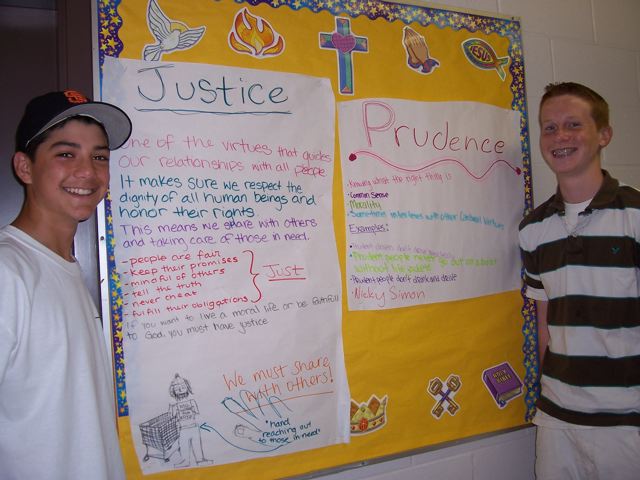 SF
JESUS
Justice
one of the virtues that guides
our relationships with all people
It makes sure we respect the
dignity of all human beings and
honor their rights.
This means we share with others
and taking care of those in need.
- people are fair
- keep their promises
- mindful of others
- tell the truth
- never cheat
- fulfill their obligations
Just
If you want to live a moral life or be faithful
to God, you must have justice
We must share
with others!
hand
reaching out
to those in need
Prudence
Knowing what the right thing is
Common Sense
Morality
Sometimes interferes with other Cardinal Virtues
Examples:
Prudent people never go out on a boat
without life jackets
Prudent people don't drink and drive
Nicky Simon
HOLY
BIBLE